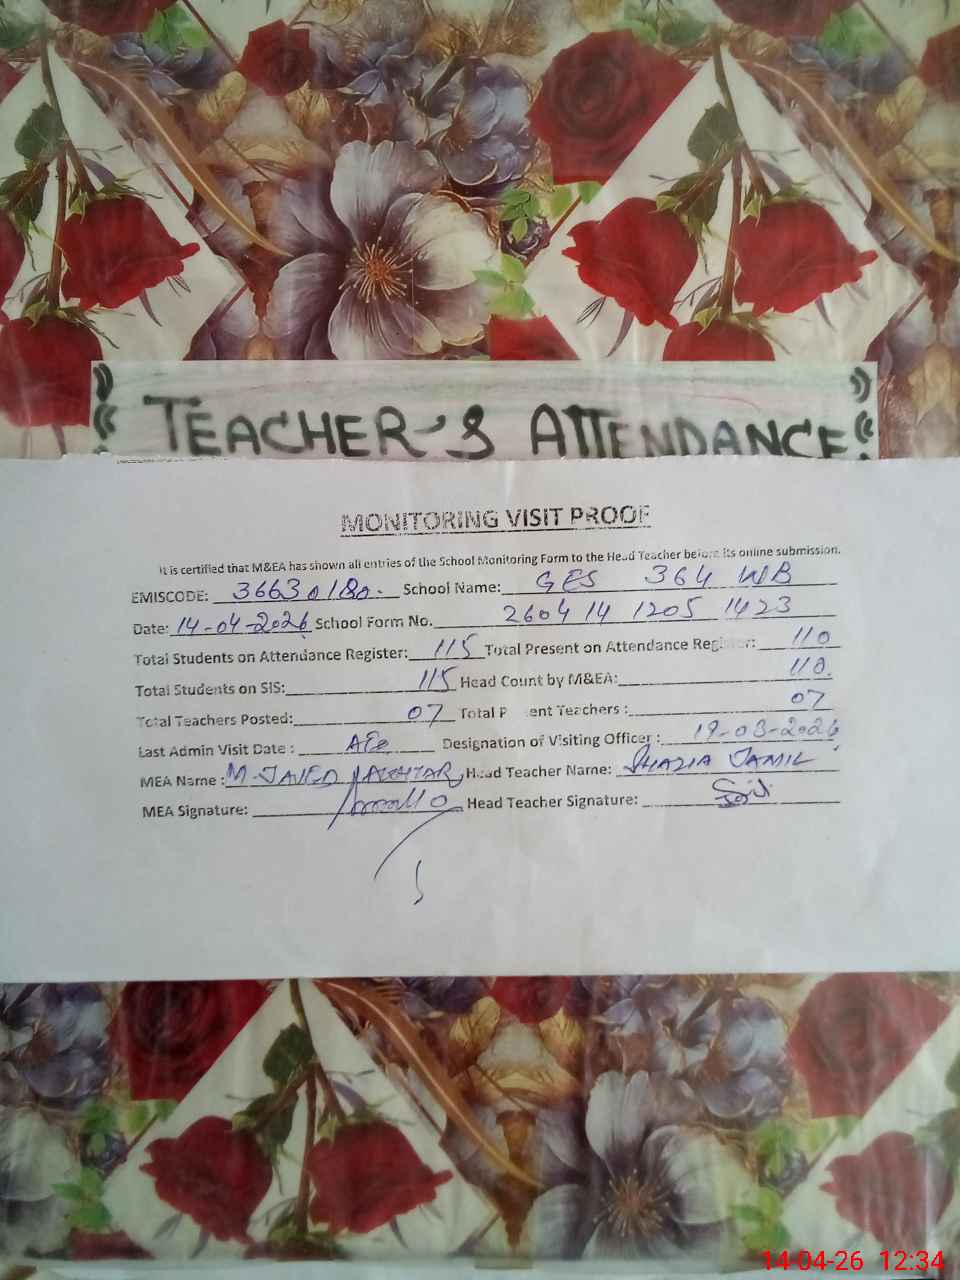 TEACHER'S ATTENDANCE
MONITORING VISIT PROOF
It is certified that M&EA has shown all entries of the School Monitoring Form to the Head Teacher before its online submission.
EMISCODE: 36630180. School Name: GES 364 WB
Date: 14-04-2026 School Form No. 260414 1205 1423
Total Students on Attendance Register: 115 Total Present on Attendance Register: 110
Total Students on SIS: 115 Head Count by M&EA: 110.
Total Teachers Posted: 07 Total P ent Teachers : 07
Last Admin Visit Date : AEo Designation of Visiting Officer : 19-03-2026
MEA Name : M. JAVED AKHTAR Head Teacher Name: SHAZIA JAMIL
MEA Signature: Head Teacher Signature:
14-04-26 12:34